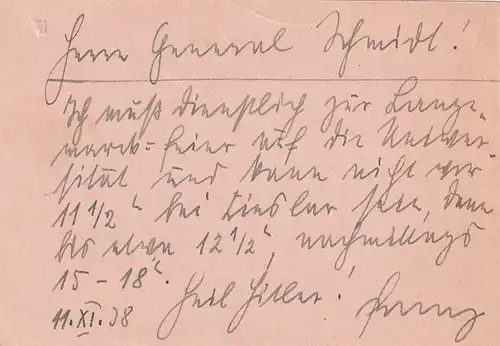 Herr General Schmidt!
Ich muß dienstlich zur Lange-
marck=feier auf die Univer-
sität und kann nicht vor
11 1/2ʰ bei sein, dann
bis etwa 12 1/2ʰ, nachmittags
15 - 18ʰ.
Heil Hitler!
11.XI.38